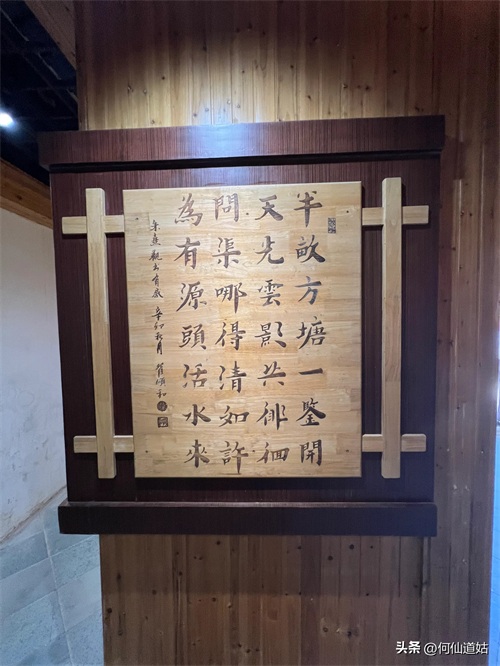 半畝方塘一鑒開
天光雲影共徘徊
問渠哪得清如許
為有源頭活水來
朱熹觀書有感 辛卯秋月
頭条 @何仙道姑